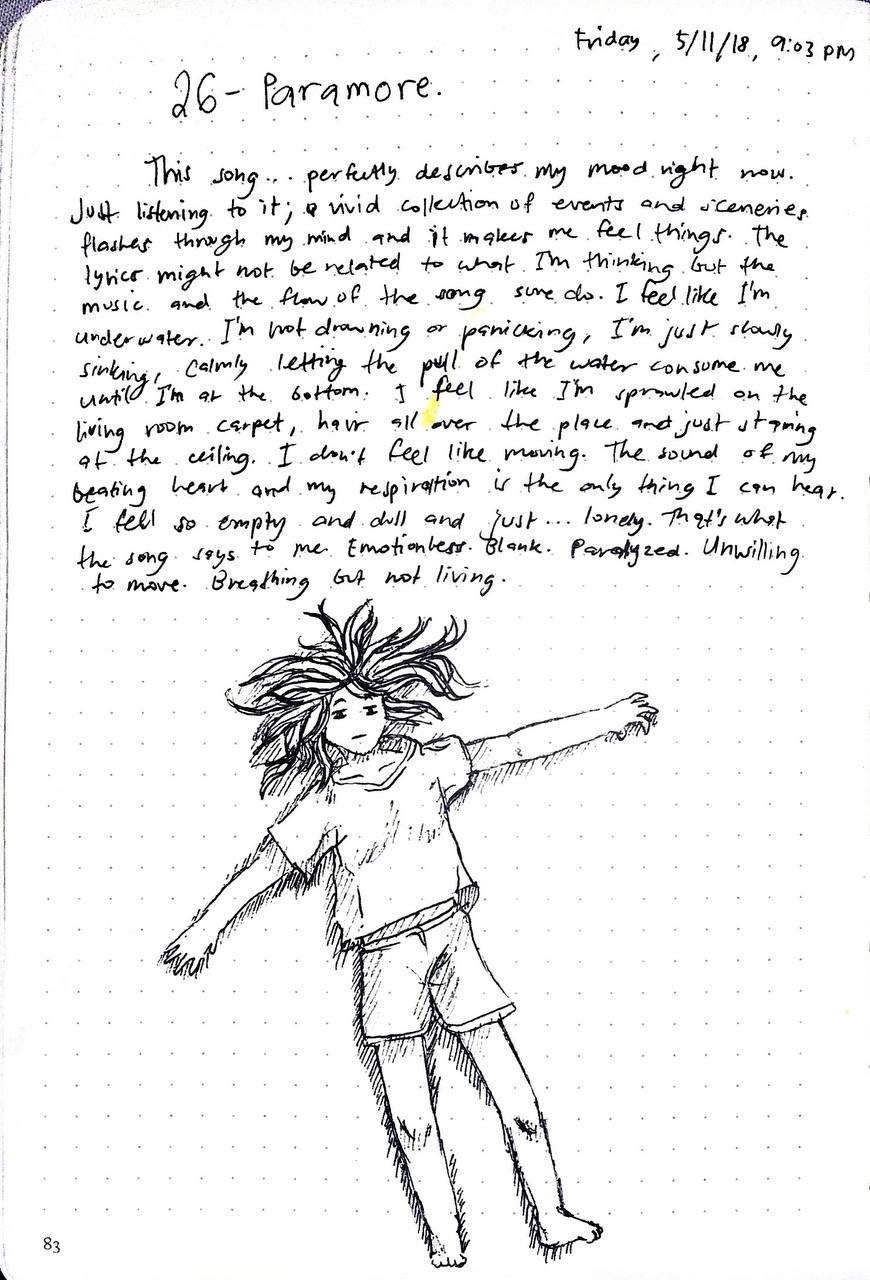 Friday, 5/11/18, 9:03 PM
26 - Paramore.
This song... perfectly describes my mood right now.
Just listening to it; a vivid collection of events and sceneries
flashes through my mind and it makes me feel things. The
lyrics might not be related to what I'm thinking but the
music and the flow of the song sure do. I feel like I'm
underwater. I'm not drowning or panicking, I'm just slowly
sinking, calmly letting the pull of the water consume me
until I'm at the bottom. I feel like I'm sprawled on the
living room carpet, hair all over the place and just staring
at the ceiling. I don't feel like moving. The sound of my
beating heart and my respiration is the only thing I can hear.
I fell so empty and dull and just... lonely. That's what
the song says to me. Emotionless. Blank. Paralyzed. Unwilling
to move. Breathing but not living.
83